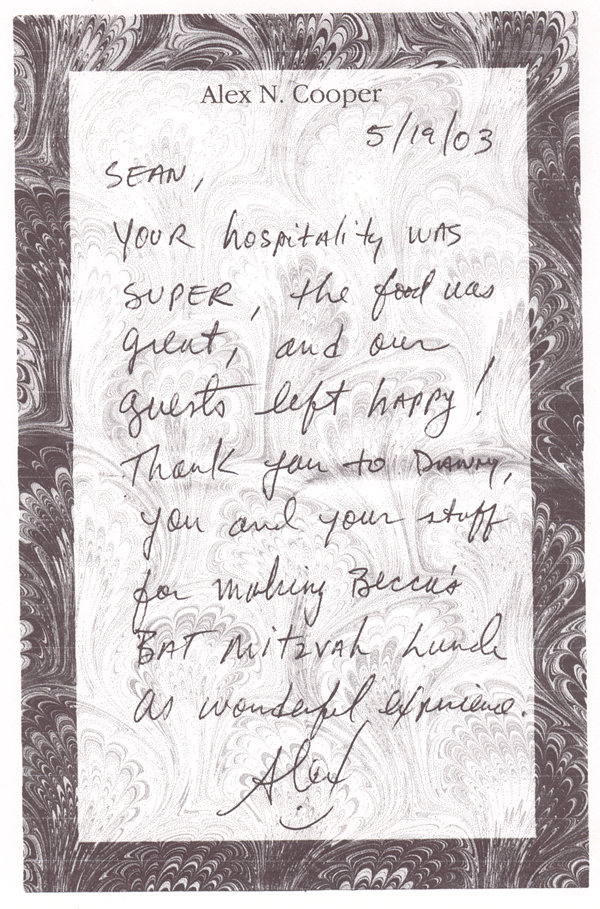 Alex N. Cooper
5/19/03
SEAN,
YOUR hospitality WAS
SUPER, the food was
great, and our
guests left hAPPy!
Thank you to DANNY,
you and your staff
for making Becca's
BAT Mitzvah Lunch
as wonderful experience.
Alex